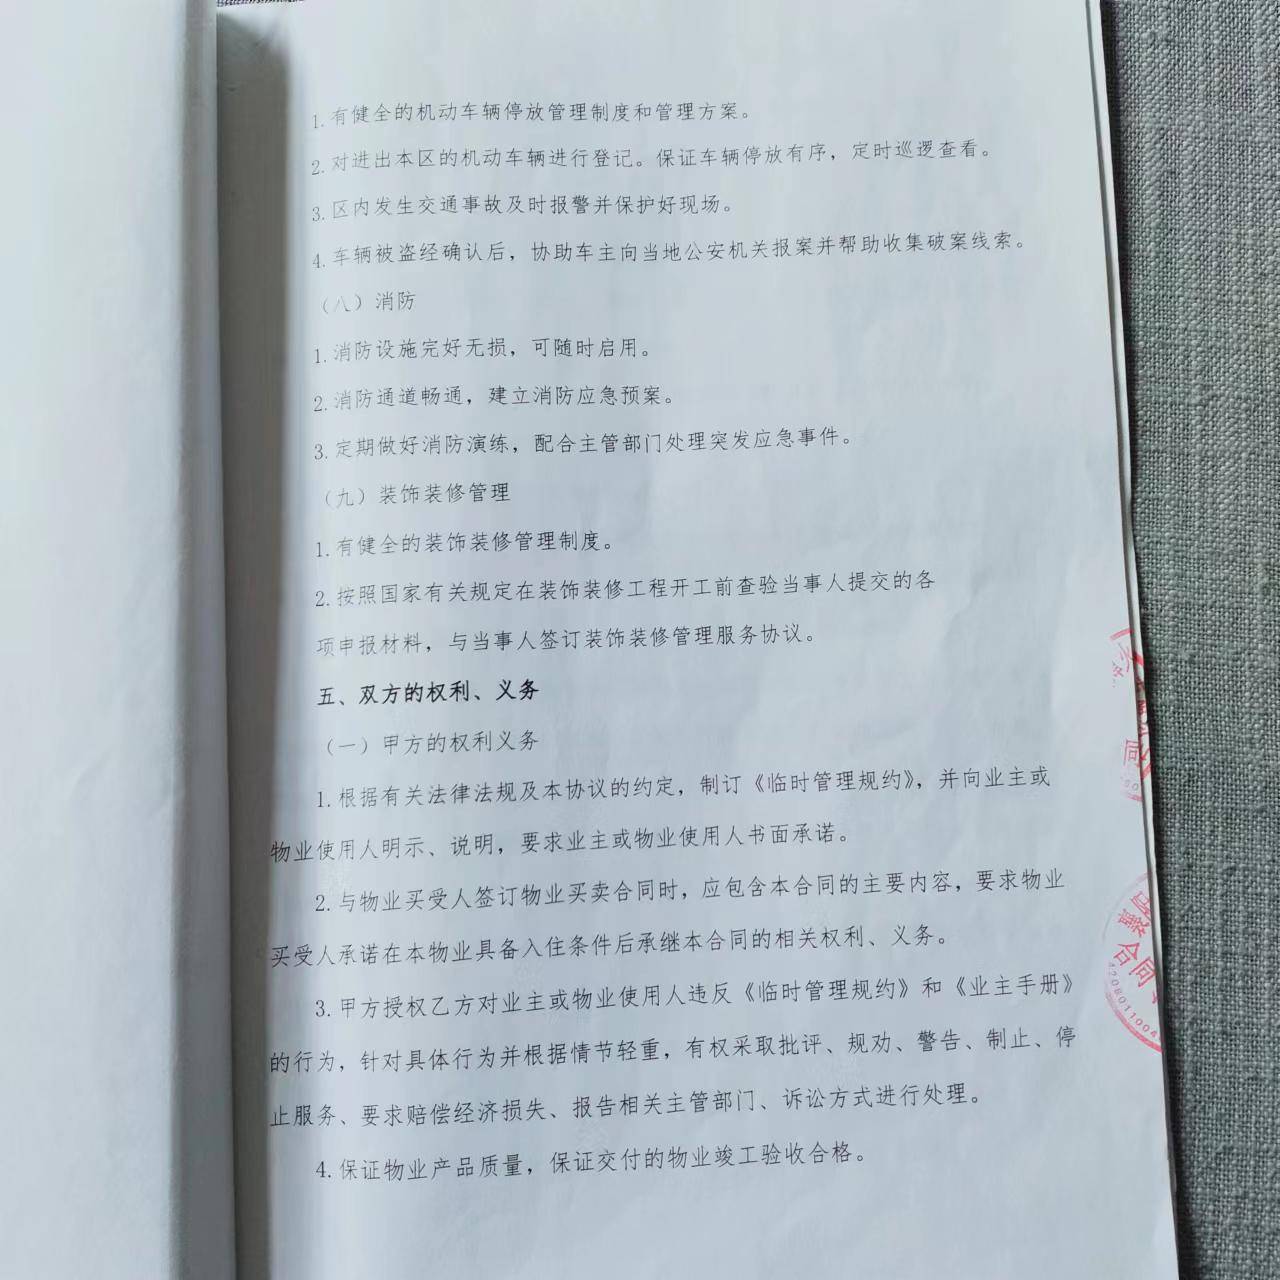 1.有健全的机动车辆停放管理制度和管理方案。
2.对进出本区的机动车辆进行登记。保证车辆停放有序，定时巡逻查看。
3.区内发生交通事故及时报警并保护好现场。
4.车辆被盗经确认后，协助车主向当地公安机关报案并帮助收集破案线索。
（八）消防
1.消防设施完好无损，可随时启用。
2.消防通道畅通，建立消防应急预案。
3.定期做好消防演练，配合主管部门处理突发应急事件。
（九）装饰装修管理
1.有健全的装饰装修管理制度。
2.按照国家有关规定在装饰装修工程开工前查验当事人提交的各
项申报材料，与当事人签订装饰装修管理服务协议。
五、双方的权利、义务
（一）甲方的权利义务
1.根据有关法律法规及本协议的约定，制订《临时管理规约》，并向业主或
物业使用人明示、说明，要求业主或物业使用人书面承诺。
2.与物业买受人签订物业买卖合同时，应包含本合同的主要内容，要求物业
买受人承诺在本物业具备入住条件后承继本合同的相关权利、义务。
3.甲方授权乙方对业主或物业使用人违反《临时管理规约》和《业主手册》
的行为，针对具体行为并根据情节轻重，有权采取批评、规劝、警告、制止、停
止服务、要求赔偿经济损失、报告相关主管部门、诉讼方式进行处理。
4.保证物业产品质量，保证交付的物业竣工验收合格。
同
合同
4208011004